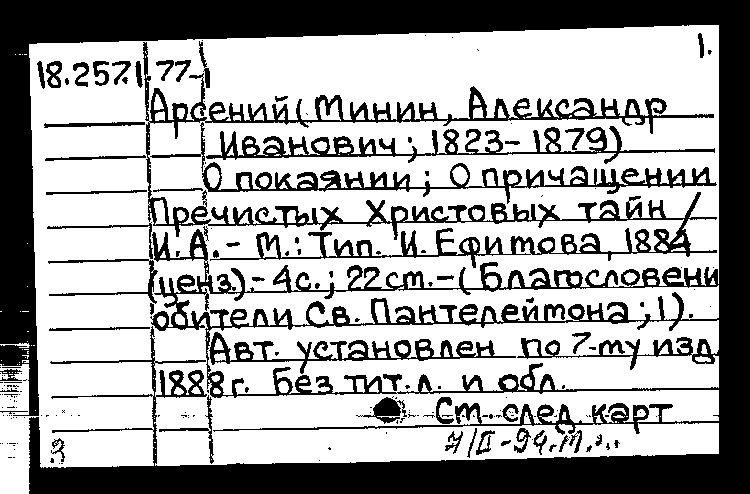 1.
18.257.1.77-1
Арсений (Минин, Александр
Иванович; 1823-1879)
О покаянии; О причащении
Пречистых Христовых тайн /
И. А. - М.: Тип. И. Ефимова, 1884
(ценз.). - 4с.; 22см. - (Благословени
обители Св. Пантелеймона; 1).
Авт. установлен по 7-му изд.
1888г. Без тит. л. и обл.
См. след. карт
3
7/II-94.